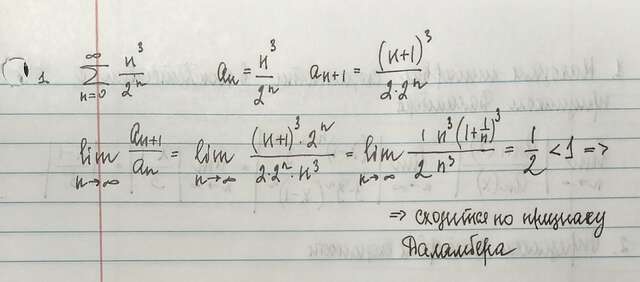 1. ∑_{n=0}^{∞} n³/2ⁿ    aₙ = n³/2ⁿ    aₙ₊₁ = (n+1)³/(2·2ⁿ)
lim_{n→∞} aₙ₊₁/aₙ = lim_{n→∞} ((n+1)³·2ⁿ)/(2·2ⁿ·n³) = lim_{n→∞} (1 n³(1+1/n)³)/(2 n³) = 1/2 < 1 =>
=> сходится по признаку
Даламбера